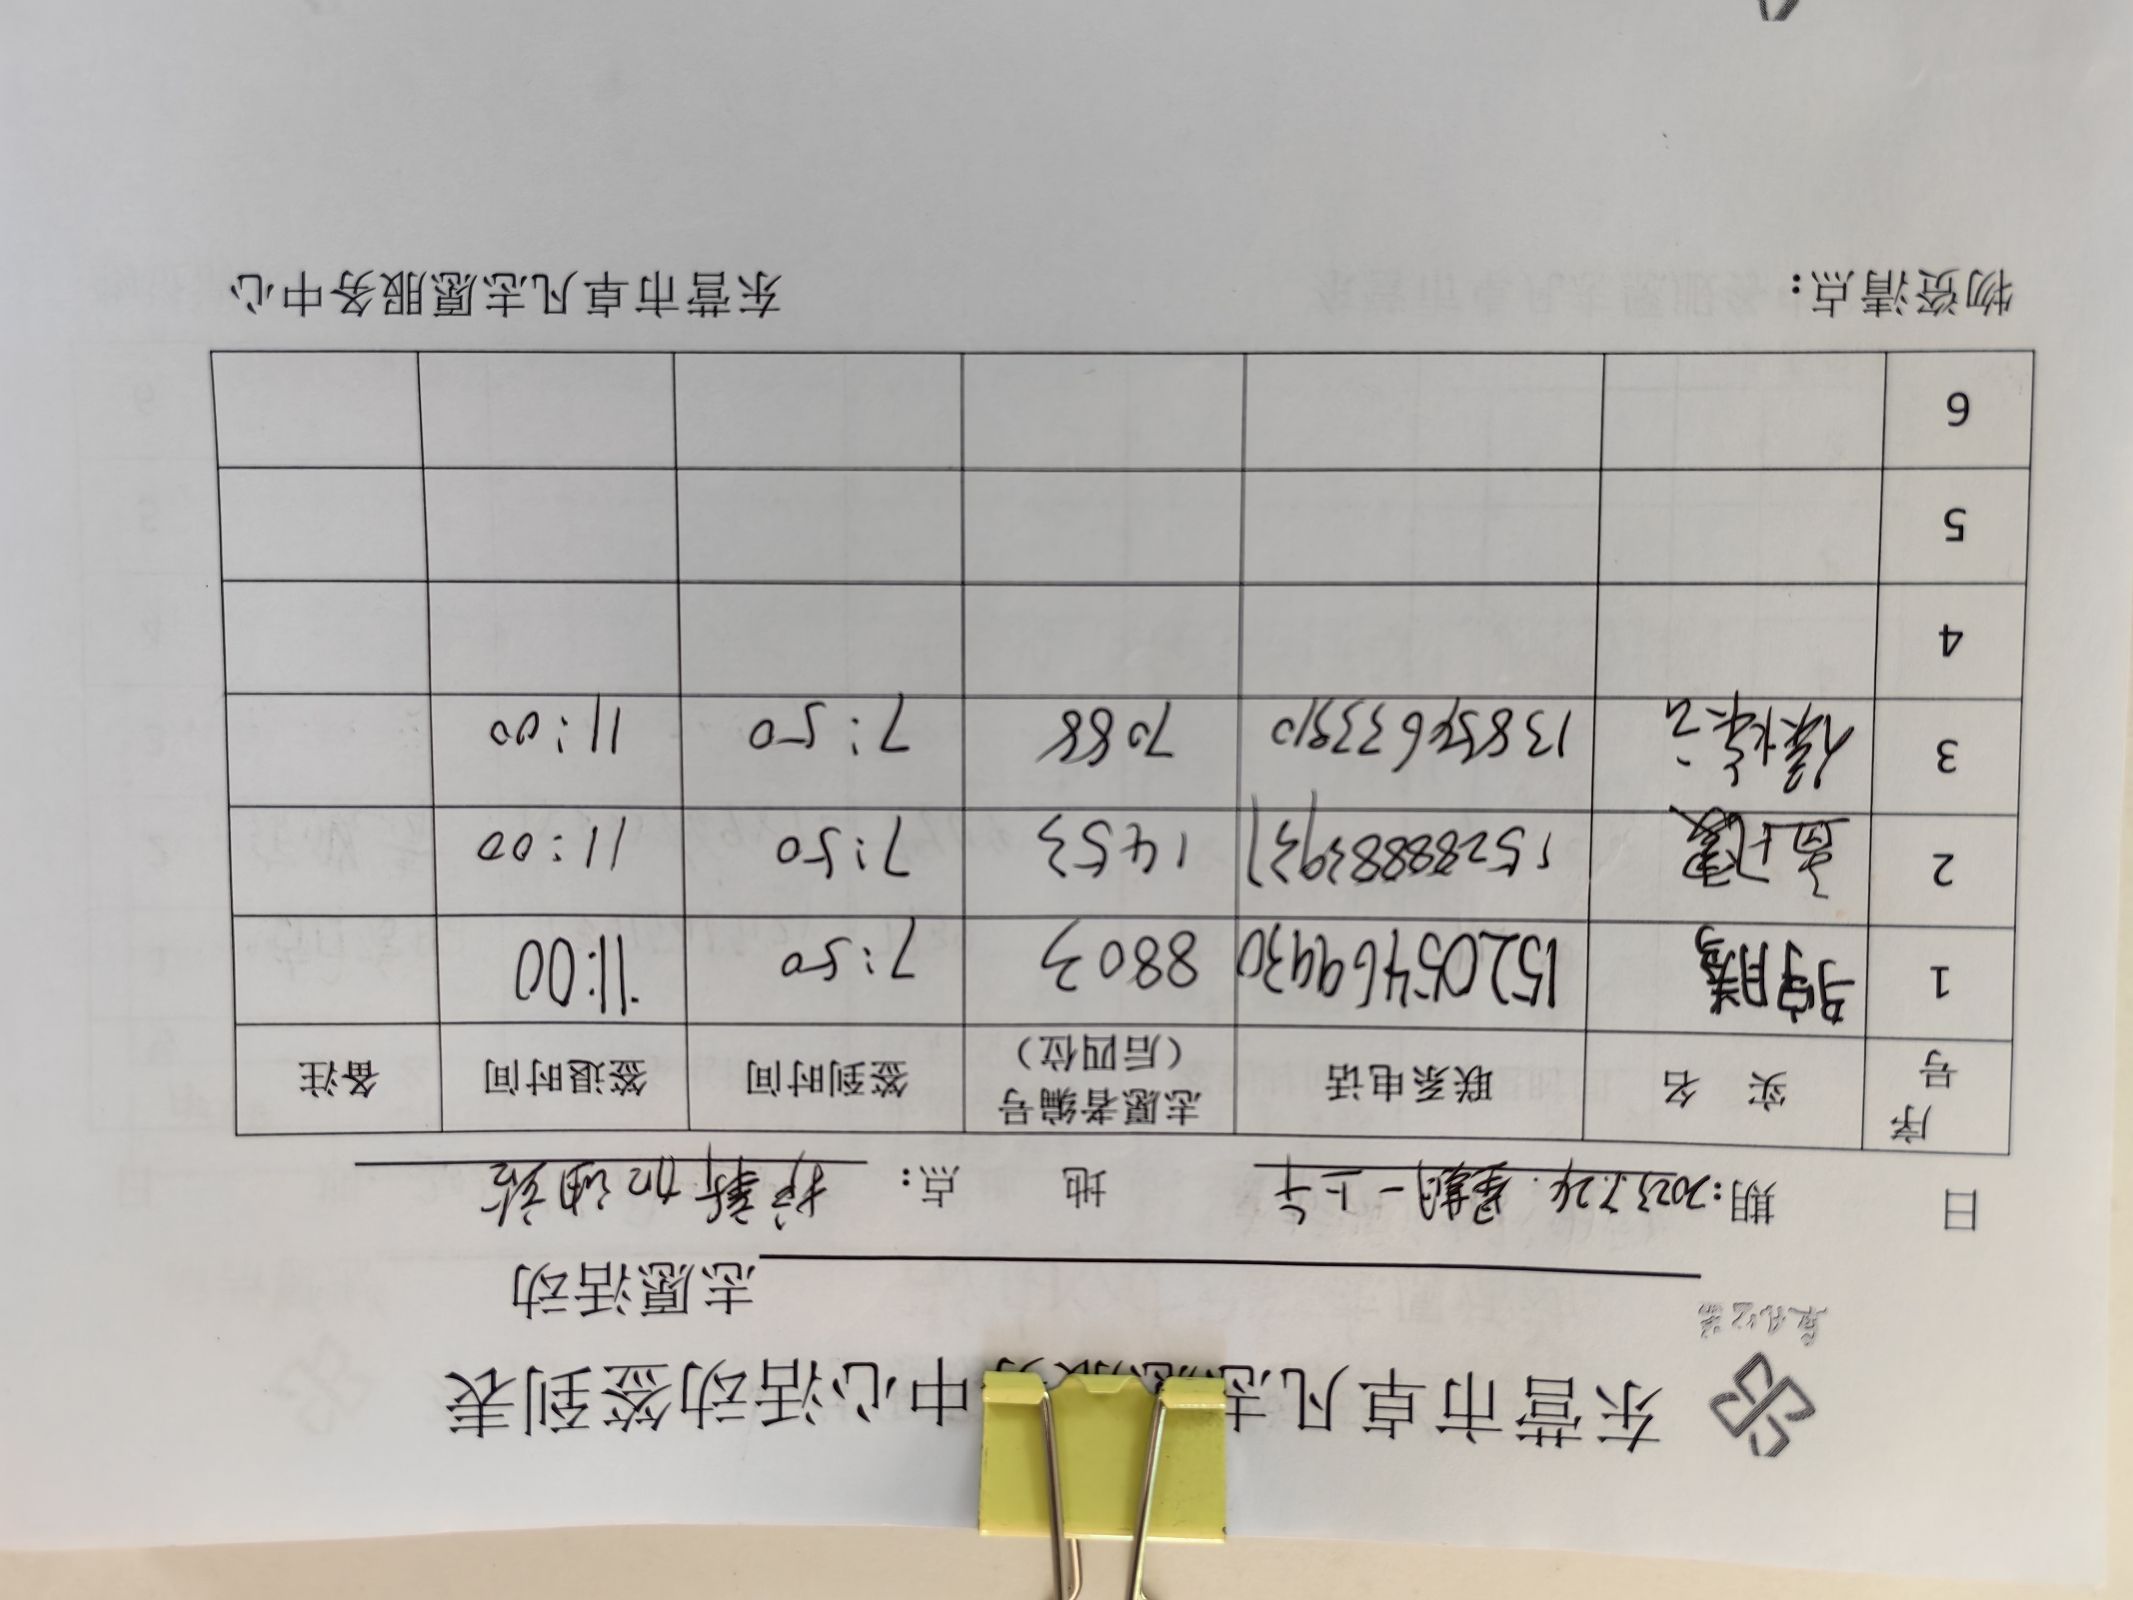 卓凡公益
东营市卓凡志愿服务中心活动签到表
志愿活动
日 期：2023.7.24. 星期一上午 地 点：加油站
序号 实 名 联系电话 志愿者编号（后四位） 签到时间 签退时间 备注
1 15205469930 8803 7:50 11:00
2 15288883937 1453 7:50 11:00
3 7088 7:50 11:00
4
5
6
物资清点： 东营市卓凡志愿服务中心